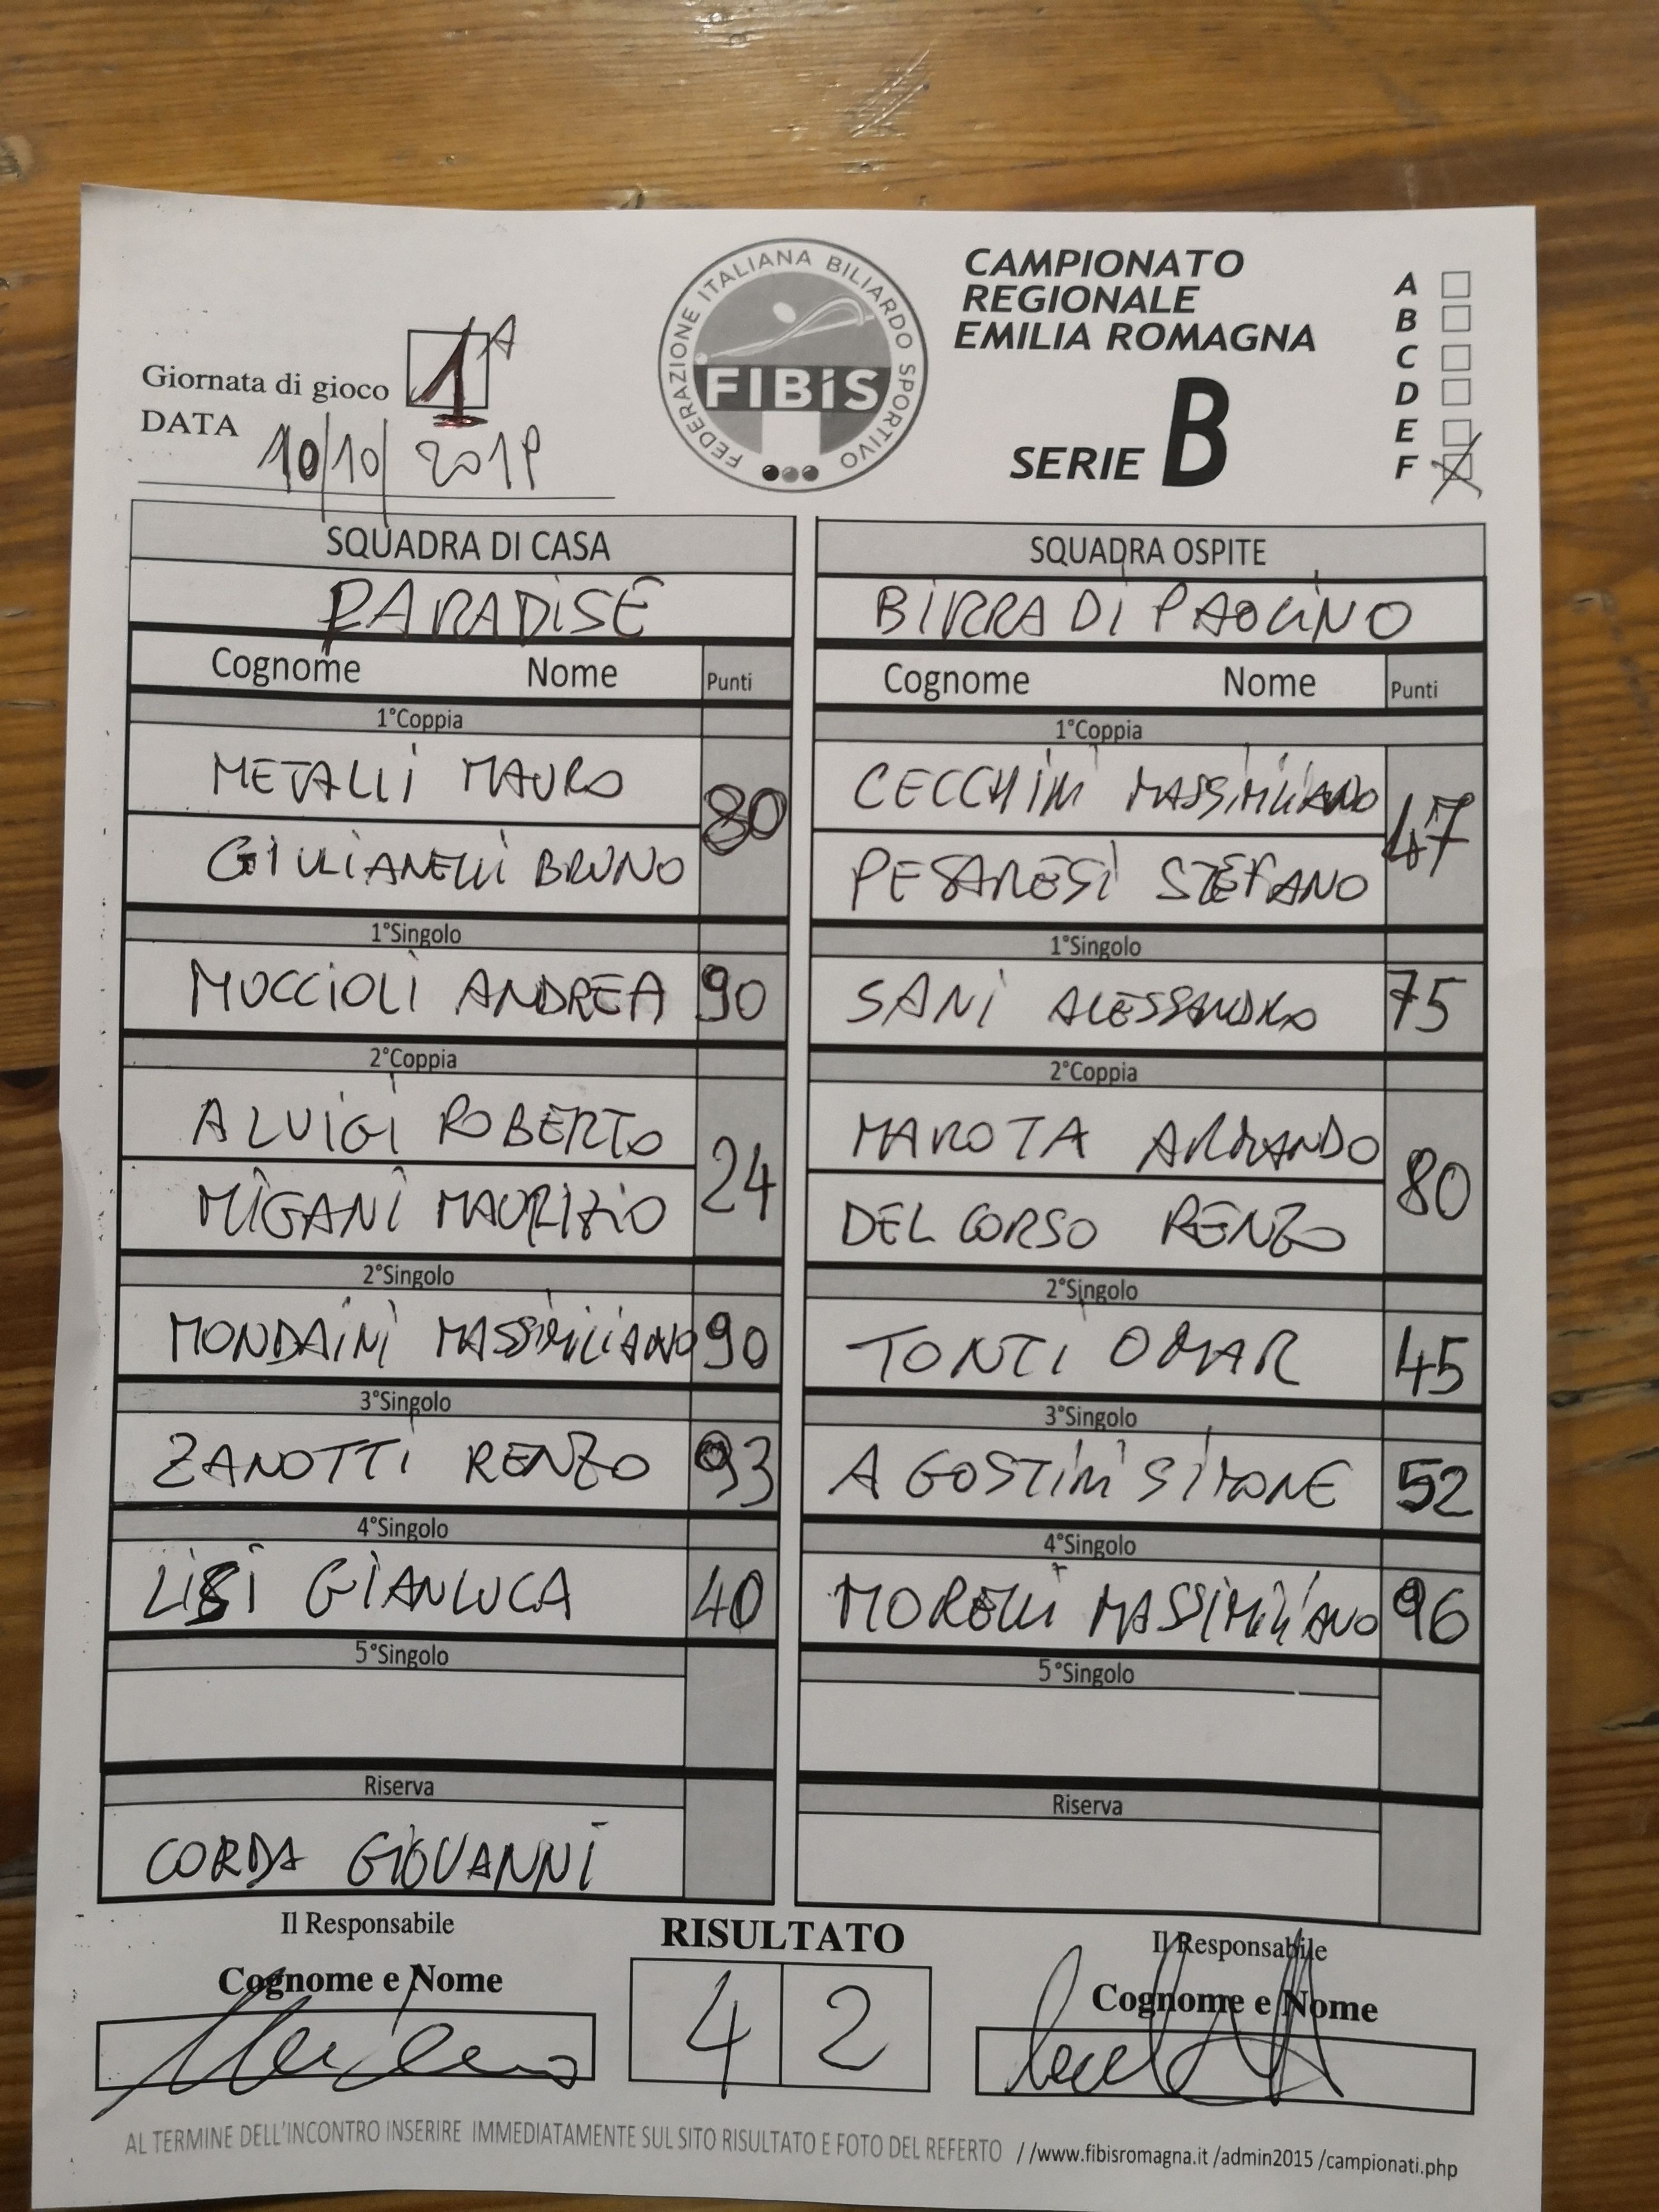 FEDERAZIONE ITALIANA BILIARDO SPORTIVO
FIBiS
CAMPIONATO
REGIONALE
EMILIA ROMAGNA
SERIE B
A
B
C
D
E
F X
Giornata di gioco 1A
DATA 10/10/2019
SQUADRA DI CASA
PARADISE
Cognome Nome Punti
1°Coppia
METALLI MAURO
80
GIULIANELLI BRUNO
1°Singolo
MUCCIOLI ANDREA 90
2°Coppia
ALUIGI ROBERTO
24
MIGANI MAURIZIO
2°Singolo
MONDAINI MASSIMILIANO 90
3°Singolo
ZANOTTI RENZO 93
4°Singolo
LISI GIANLUCA 40
5°Singolo
Riserva
CORDA GIOVANNI
SQUADRA OSPITE
BIRRA DI PAOLINO
Cognome Nome Punti
1°Coppia
CECCHINI MASSIMILIANO
47
PESARESI STEFANO
1°Singolo
SANI ALESSANDRO 75
2°Coppia
MAROTA ARMANDO
80
DEL CORSO RENZO
2°Singolo
TONTI OMAR 45
3°Singolo
AGOSTINI SIMONE 52
4°Singolo
MORELLI MASSIMILIANO 96
5°Singolo
Riserva
Il Responsabile
Cognome e Nome
RISULTATO
4 2
Il Responsabile
Cognome e Nome
AL TERMINE DELL'INCONTRO INSERIRE IMMEDIATAMENTE SUL SITO RISULTATO E FOTO DEL REFERTO //www.fibisromagna.it /admin2015 /campionati.php